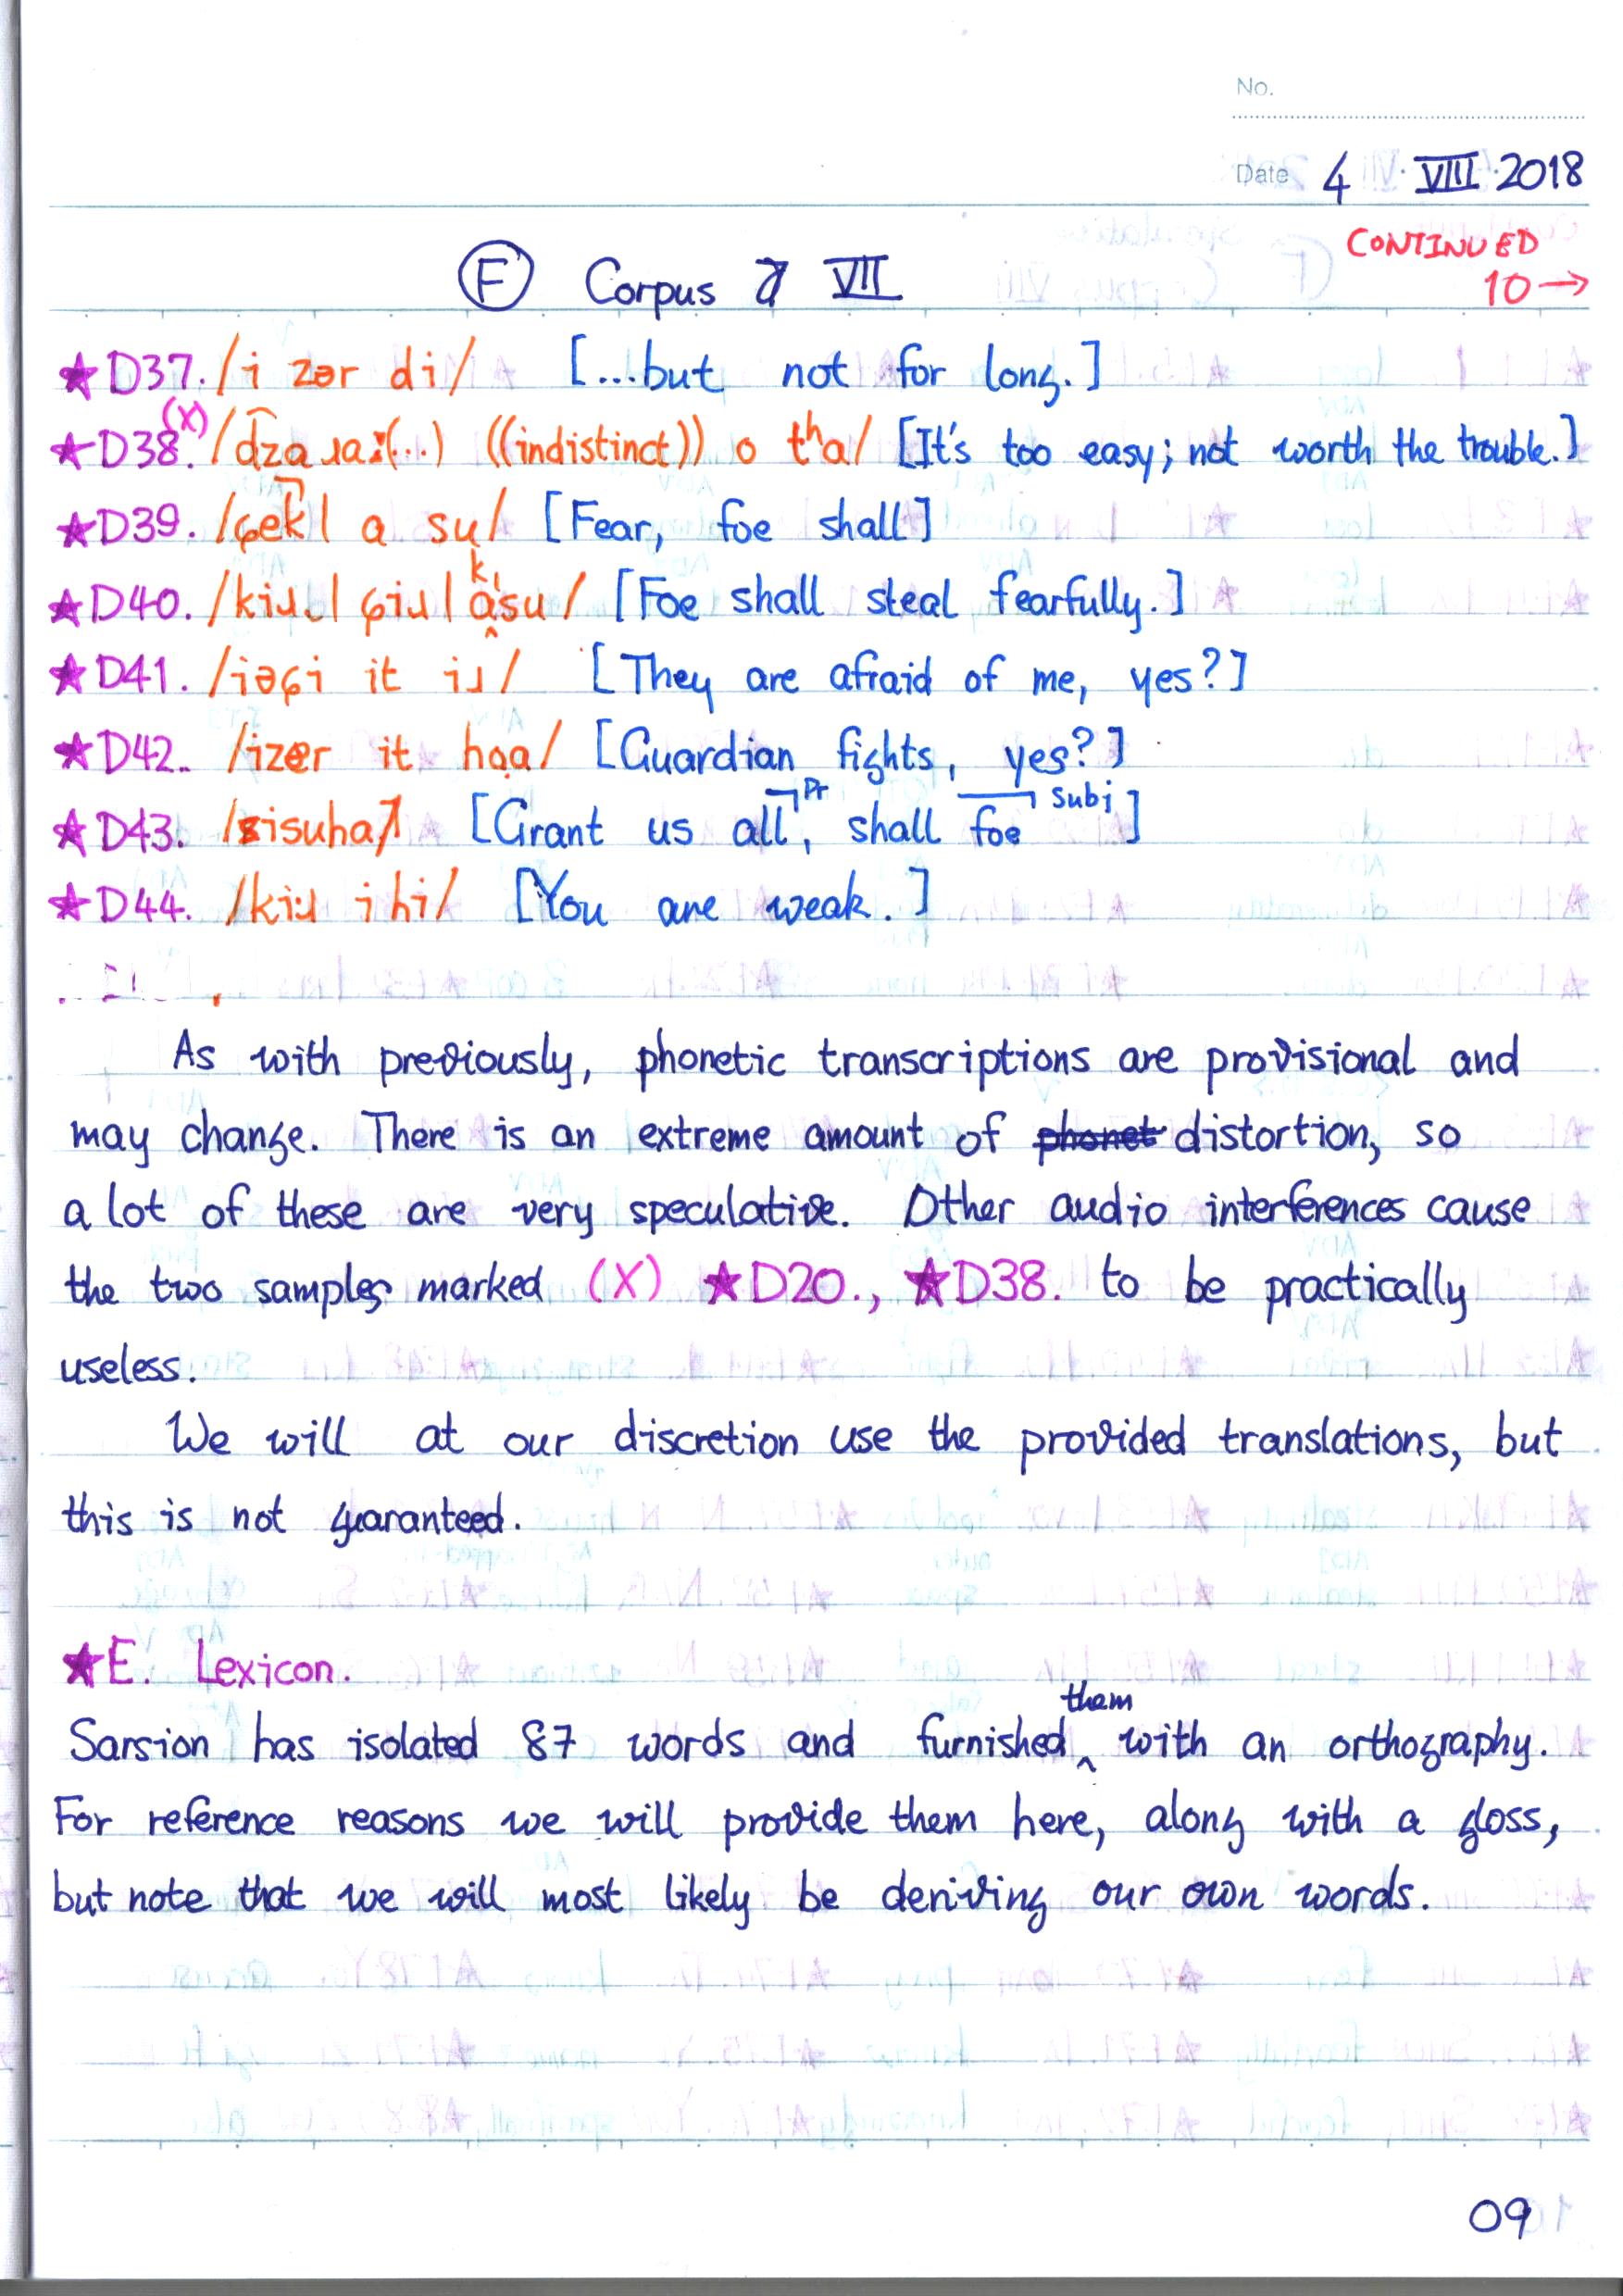 No.
Date 4 · VIII · 2018
CONTINUED
10 →
(F) Corpus VII
★D37. /i zər di/ [...but not for long.]
(X)
★D38. /d͡za ɹaː(..) ((indistinct)) o tʰa/ [It's too easy; not worth the trouble.]
★D39. /ɕek̚| a su̥/ [Fear, foe shall]
★D40. /kiɹ.| ɕiɹ| a su/ [Foe shall steal fearfully.]
★D41. /iəɕi it iɹ/ [They are afraid of me, yes?]
★D42. /izer it hạạ/ [Guardian fights, yes?]
★D43. /sisuha/ [Grant us all Pr, shall foe Subj]
★D44. /kiɹ ihi/ [You are weak.]
As with previously, phonetic transcriptions are provisional and
may change. There is an extreme amount of phonet distortion, so
a lot of these are very speculative. Other audio interferences cause
the two samples marked (X) ★D20., ★D38. to be practically
useless.
We will at our discretion use the provided translations, but
this is not guaranteed.
★E. Lexicon.
Sarsion has isolated 87 words and furnished them with an orthography.
For reference reasons we will provide them here, along with a gloss,
but note that we will most likely be deriving our own words.
09